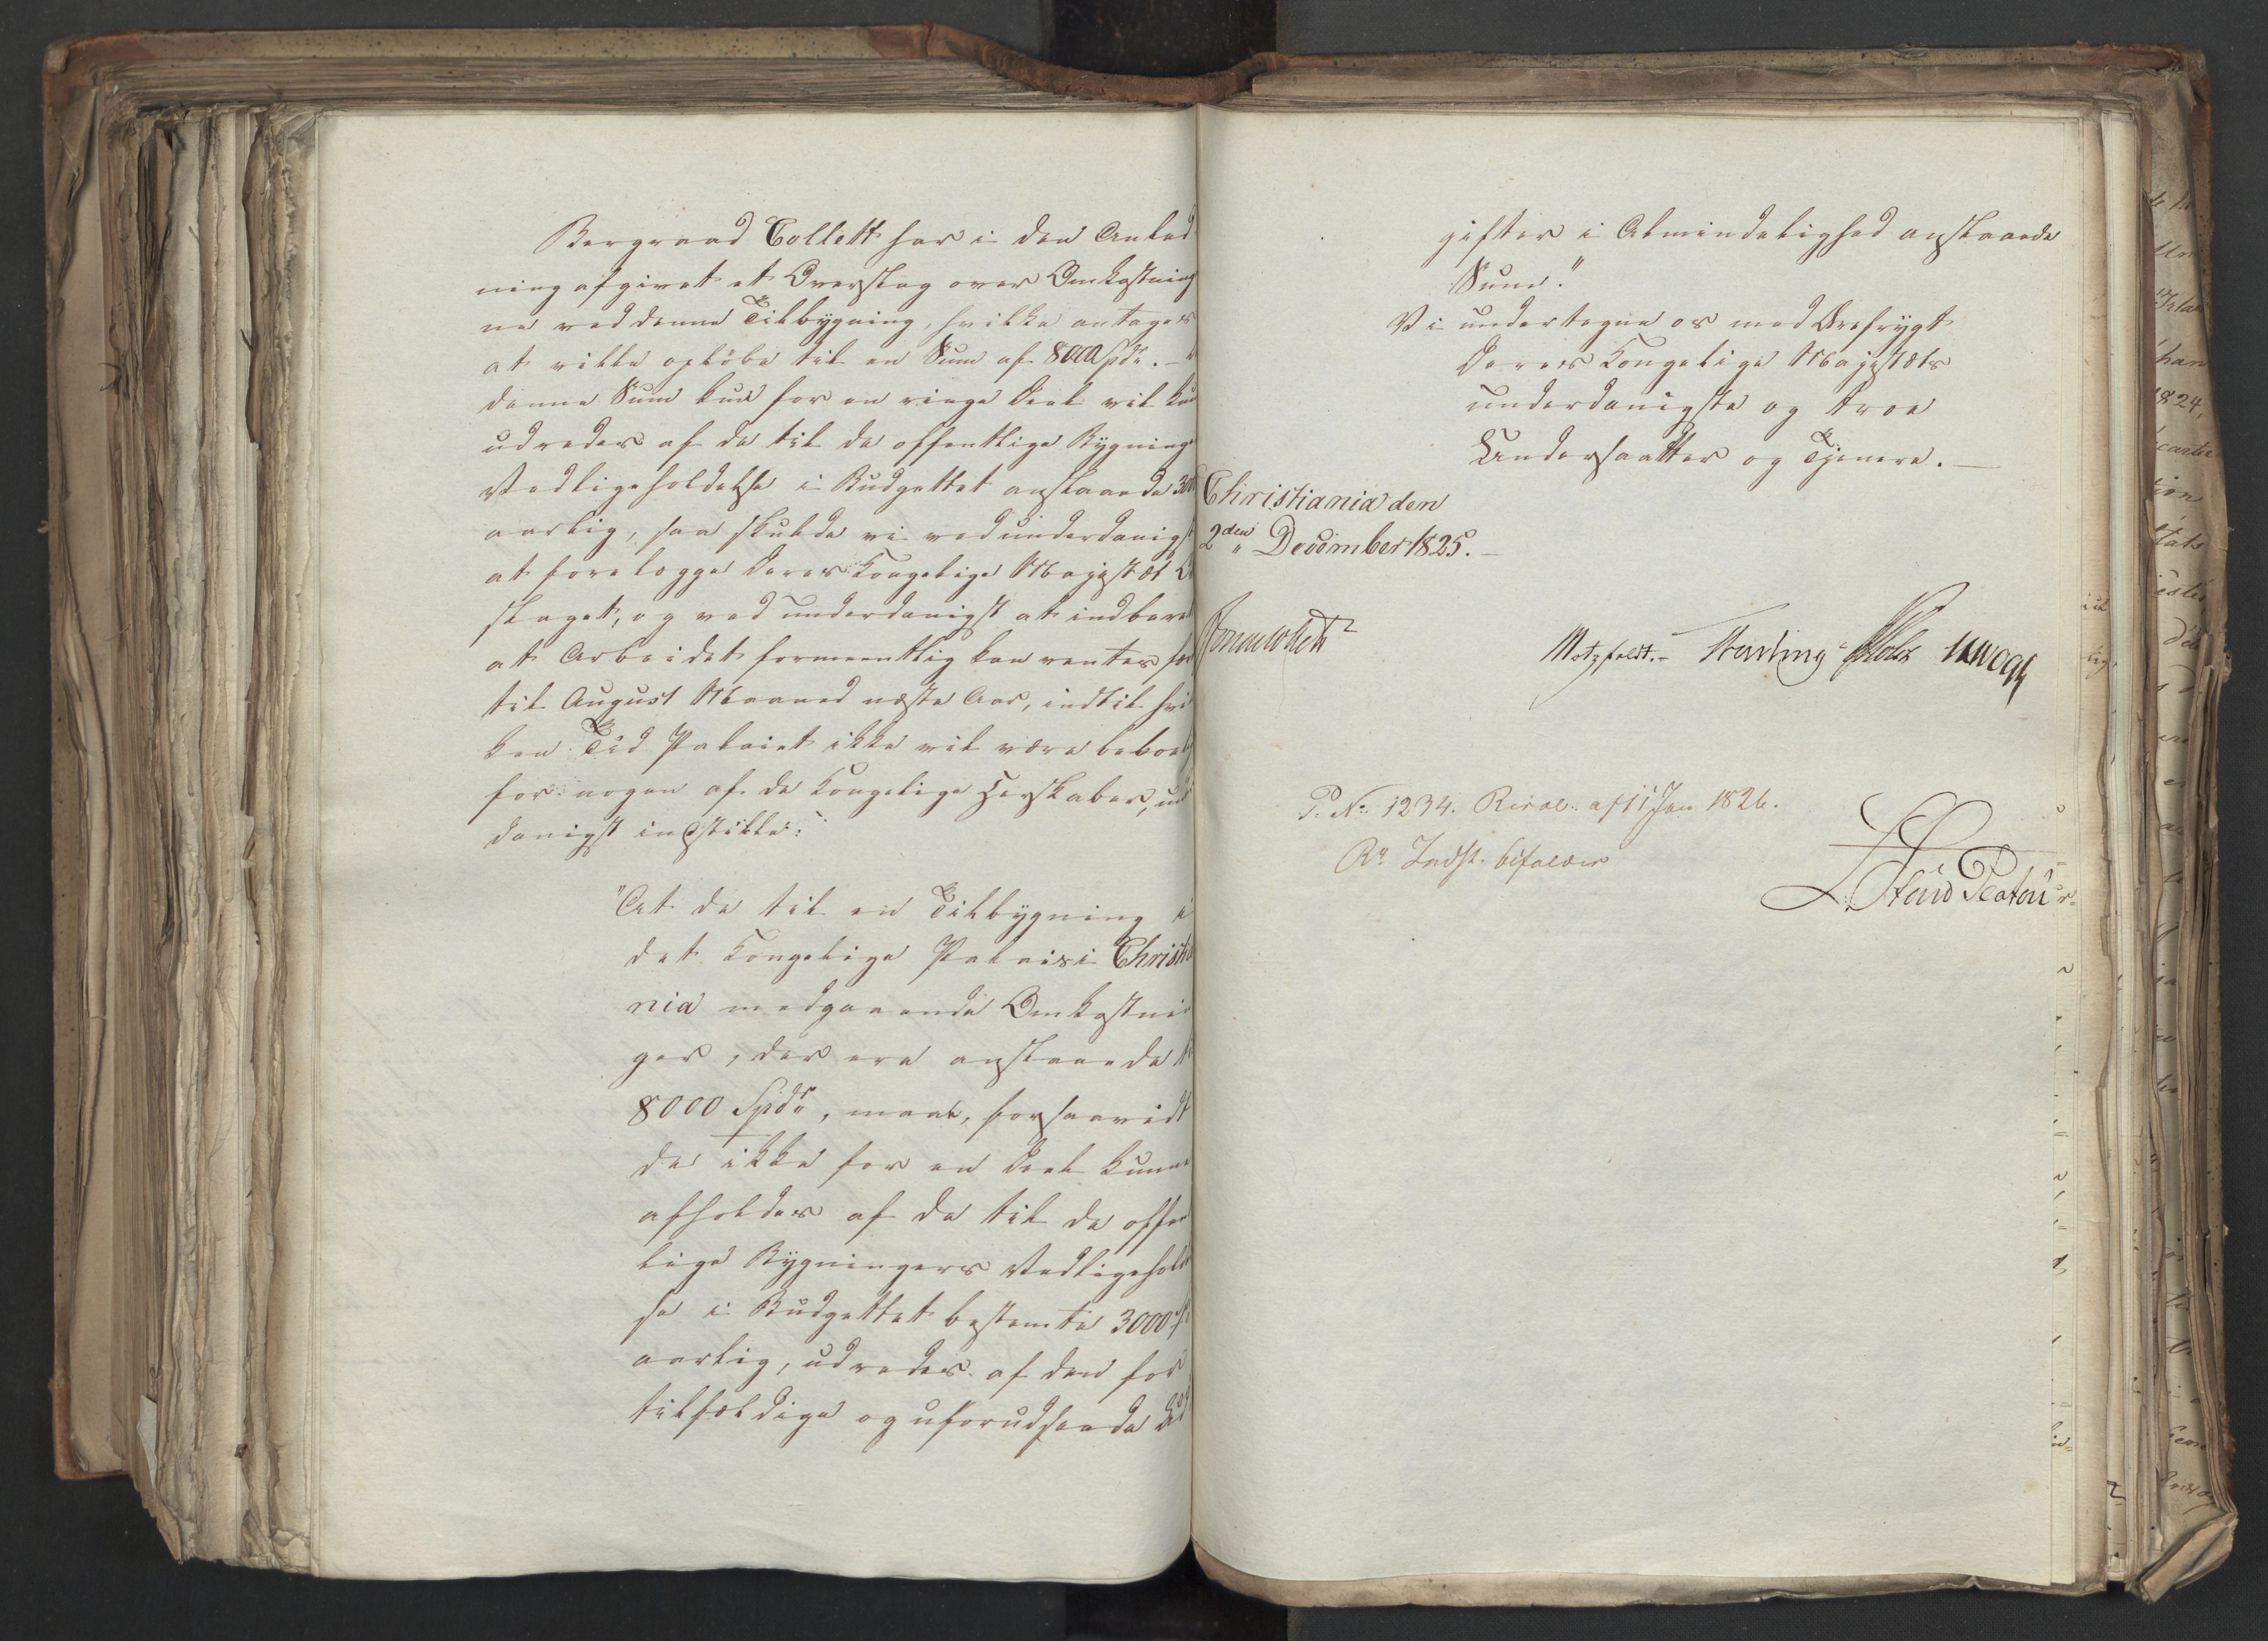 Bergraad Collett har i den Anled
ning afgivet et Overslag over Omkostning
ne ved denne Tilbygning, hvilke antages
at ville opløbe til en Sum af 8000 Spdr. –
denne Sum kun for en ringe Deel vil kun
udredes af de til de offentlige Bygning
Vedligeholdelse i Budgettet anslaaede 300
aarlig, saa skulde vi ved underdanigst
at forelægge Deres Kongelige Majestæt O
slaget, og ved underdanigst at indbere
at Arbeidet formeentlig kan ventes fær
til August Maaned næste Aar, indtil hvil
ken Tid Palaiet ikke vil være beboel
for nogen af de Kongelige Herskaber, un
danigst indstille:
"At de til en Tilbygning i
det Kongelige Palais i Christia
nia medgaaende Omkostnin
ger, der ere anslaaede ti
8000 Spdr, maae, forsaavidt
de ikke for en Deel kunne
afholdes af de til de offent
lige Bygningers Vedligeholdel
se i Budgettet bestemte 3000 Sp
aarlig, udredes af den for
tilfældige og uforudseede Ud
gifter i Almindelighed anslaaede
Sum."
Vi undertegne os med Ærefrygt
Deres Kongelige Majestæts
underdanigste og troe
Undersaatter og Tjenere. –
Christiania den
2den December 1825. –
Jonas Collett
Motzfeldt. – Sterling Holst
P. No. 1234. Resol. af 11 Jan 1826.
Rs Indst. bifaldes